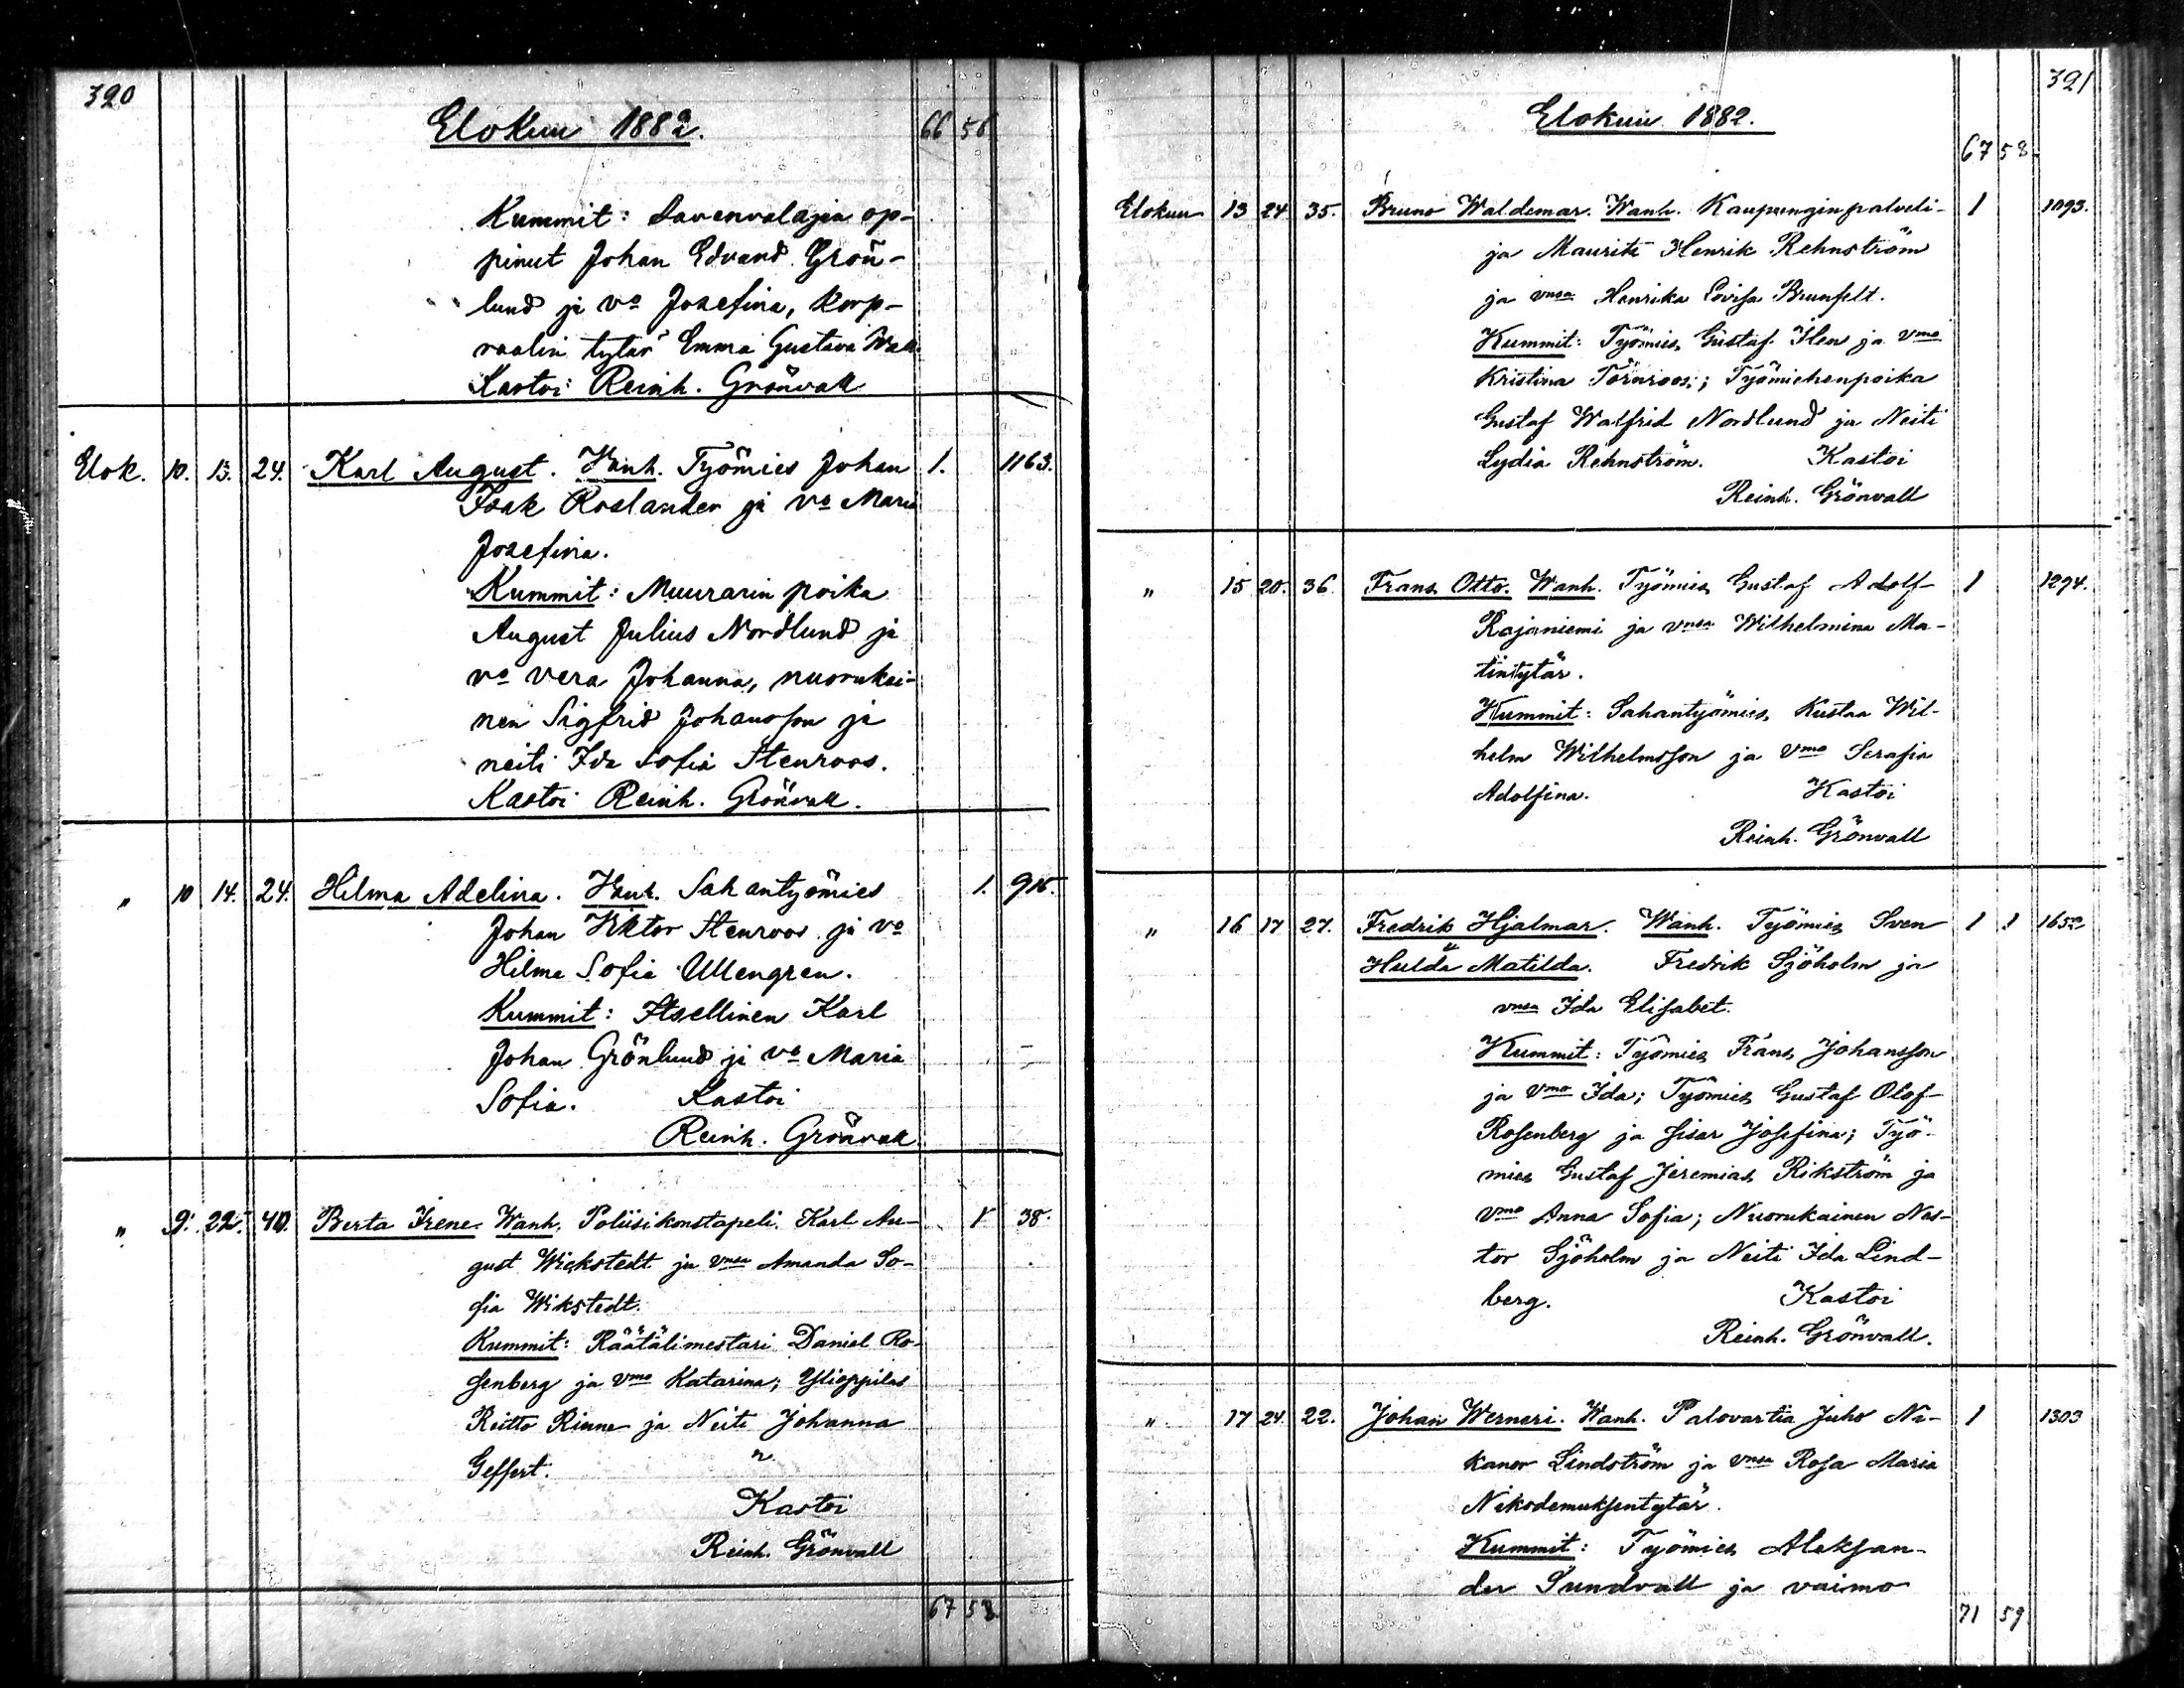 320
Elokuu 1882. 66 56
Kummit: Savenvalajan op-
pinut Johan Edvard Grön-
lund ja vo Josefina, korp-
raalin tytär Emma Gustava Wall.
Kastoi Reinh. Grönvall
Elok. 10. 13. 24. Karl August. Vanh. Työmies Johan 1. 1163.
Isak Roslander ja vo Maria
Josefina.
Kummit: Muurarin poika
August Julius Nordlund ja
vo Vera Johanna, nuorukai-
nen Sigfrid Johansson ja
neiti Ida Sofia Stenroos.
Kastoi Reinh. Grönvall.
" 10 14. 24. Hilma Adelina. Vanh. Sahantyömies 1. 916.
Johan Viktor Stenroos ja vo
Hilma Sofia Ullengren.
Kummit: Itsellinen Karl
Johan Grönlund ja vo Maria
Sofia. Kastoi
Reinh. Grönvall
" 9. 22. 40. Berta Irene. Wanh. Poliisikonstapeli Karl Au- 1 38.
gust Wickstedt ja vnsa Amanda So-
fia Wikstedt.
Kummit: Räätälimestari Daniel Ro-
senberg ja vmo Katarina; Ylioppilas
Reitto Rinne ja Neiti Johanna
Geffert. "
Kastoi
Reinh. Grönvall
67 58.
321
Elokuu 1882.
67 58.
Elokuu 13 24 35. Bruno Waldemar. Wanh. Kaupunginpalveli- 1 1093.
ja Maurits Henrik Rehnström
ja vnsa Henrika Lovisa Brunfelt.
Kummit: Työmies Gustaf Ilen ja vmo
Kristina Törnroos; Työmiehenpoika
Gustaf Walfrid Nordlund ja Neiti
Lydia Rehnström. Kastoi
Reinh. Grönvall
" 15 20. 36. Frans Otto. Wanh. Työmies Gustaf Adolf 1 1294.
Rajaniemi ja vnsa Wilhelmina Ma-
tintytär.
Kummit: Sahantyömies Kustaa Wil-
helm Wilhelmsson ja vmo Serafia
Adolfina. Kastoi
Reinh. Grönvall
" 16 17 27. Fredrik Hjalmar. Wanh. Työmies Sven 1 1 1652
Hulda Matilda. Fredrik Sjöholm ja
vnsa Ida Elisabet.
Kummit: Työmies Frans Johansson
ja vmo Ida; Työmies Gustaf Olof
Rosenberg ja sisar Josefina; Työ-
mies Gustaf Jeremias Rikström ja
vmo Anna Sofia; Nuorukainen Nes-
tor Sjöholm ja Neiti Ida Lind-
berg. Kastoi
Reinh. Grönvall.
" 17 24. 22. Johan Werneri. Wanh. Palovartia Juho Ni- 1 1303
kanor Lindström ja vnsa Rosa Maria
Nikodemuksentytär.
Kummit: Työmies Aleksan-
der Sundvall ja vaimo
71 59